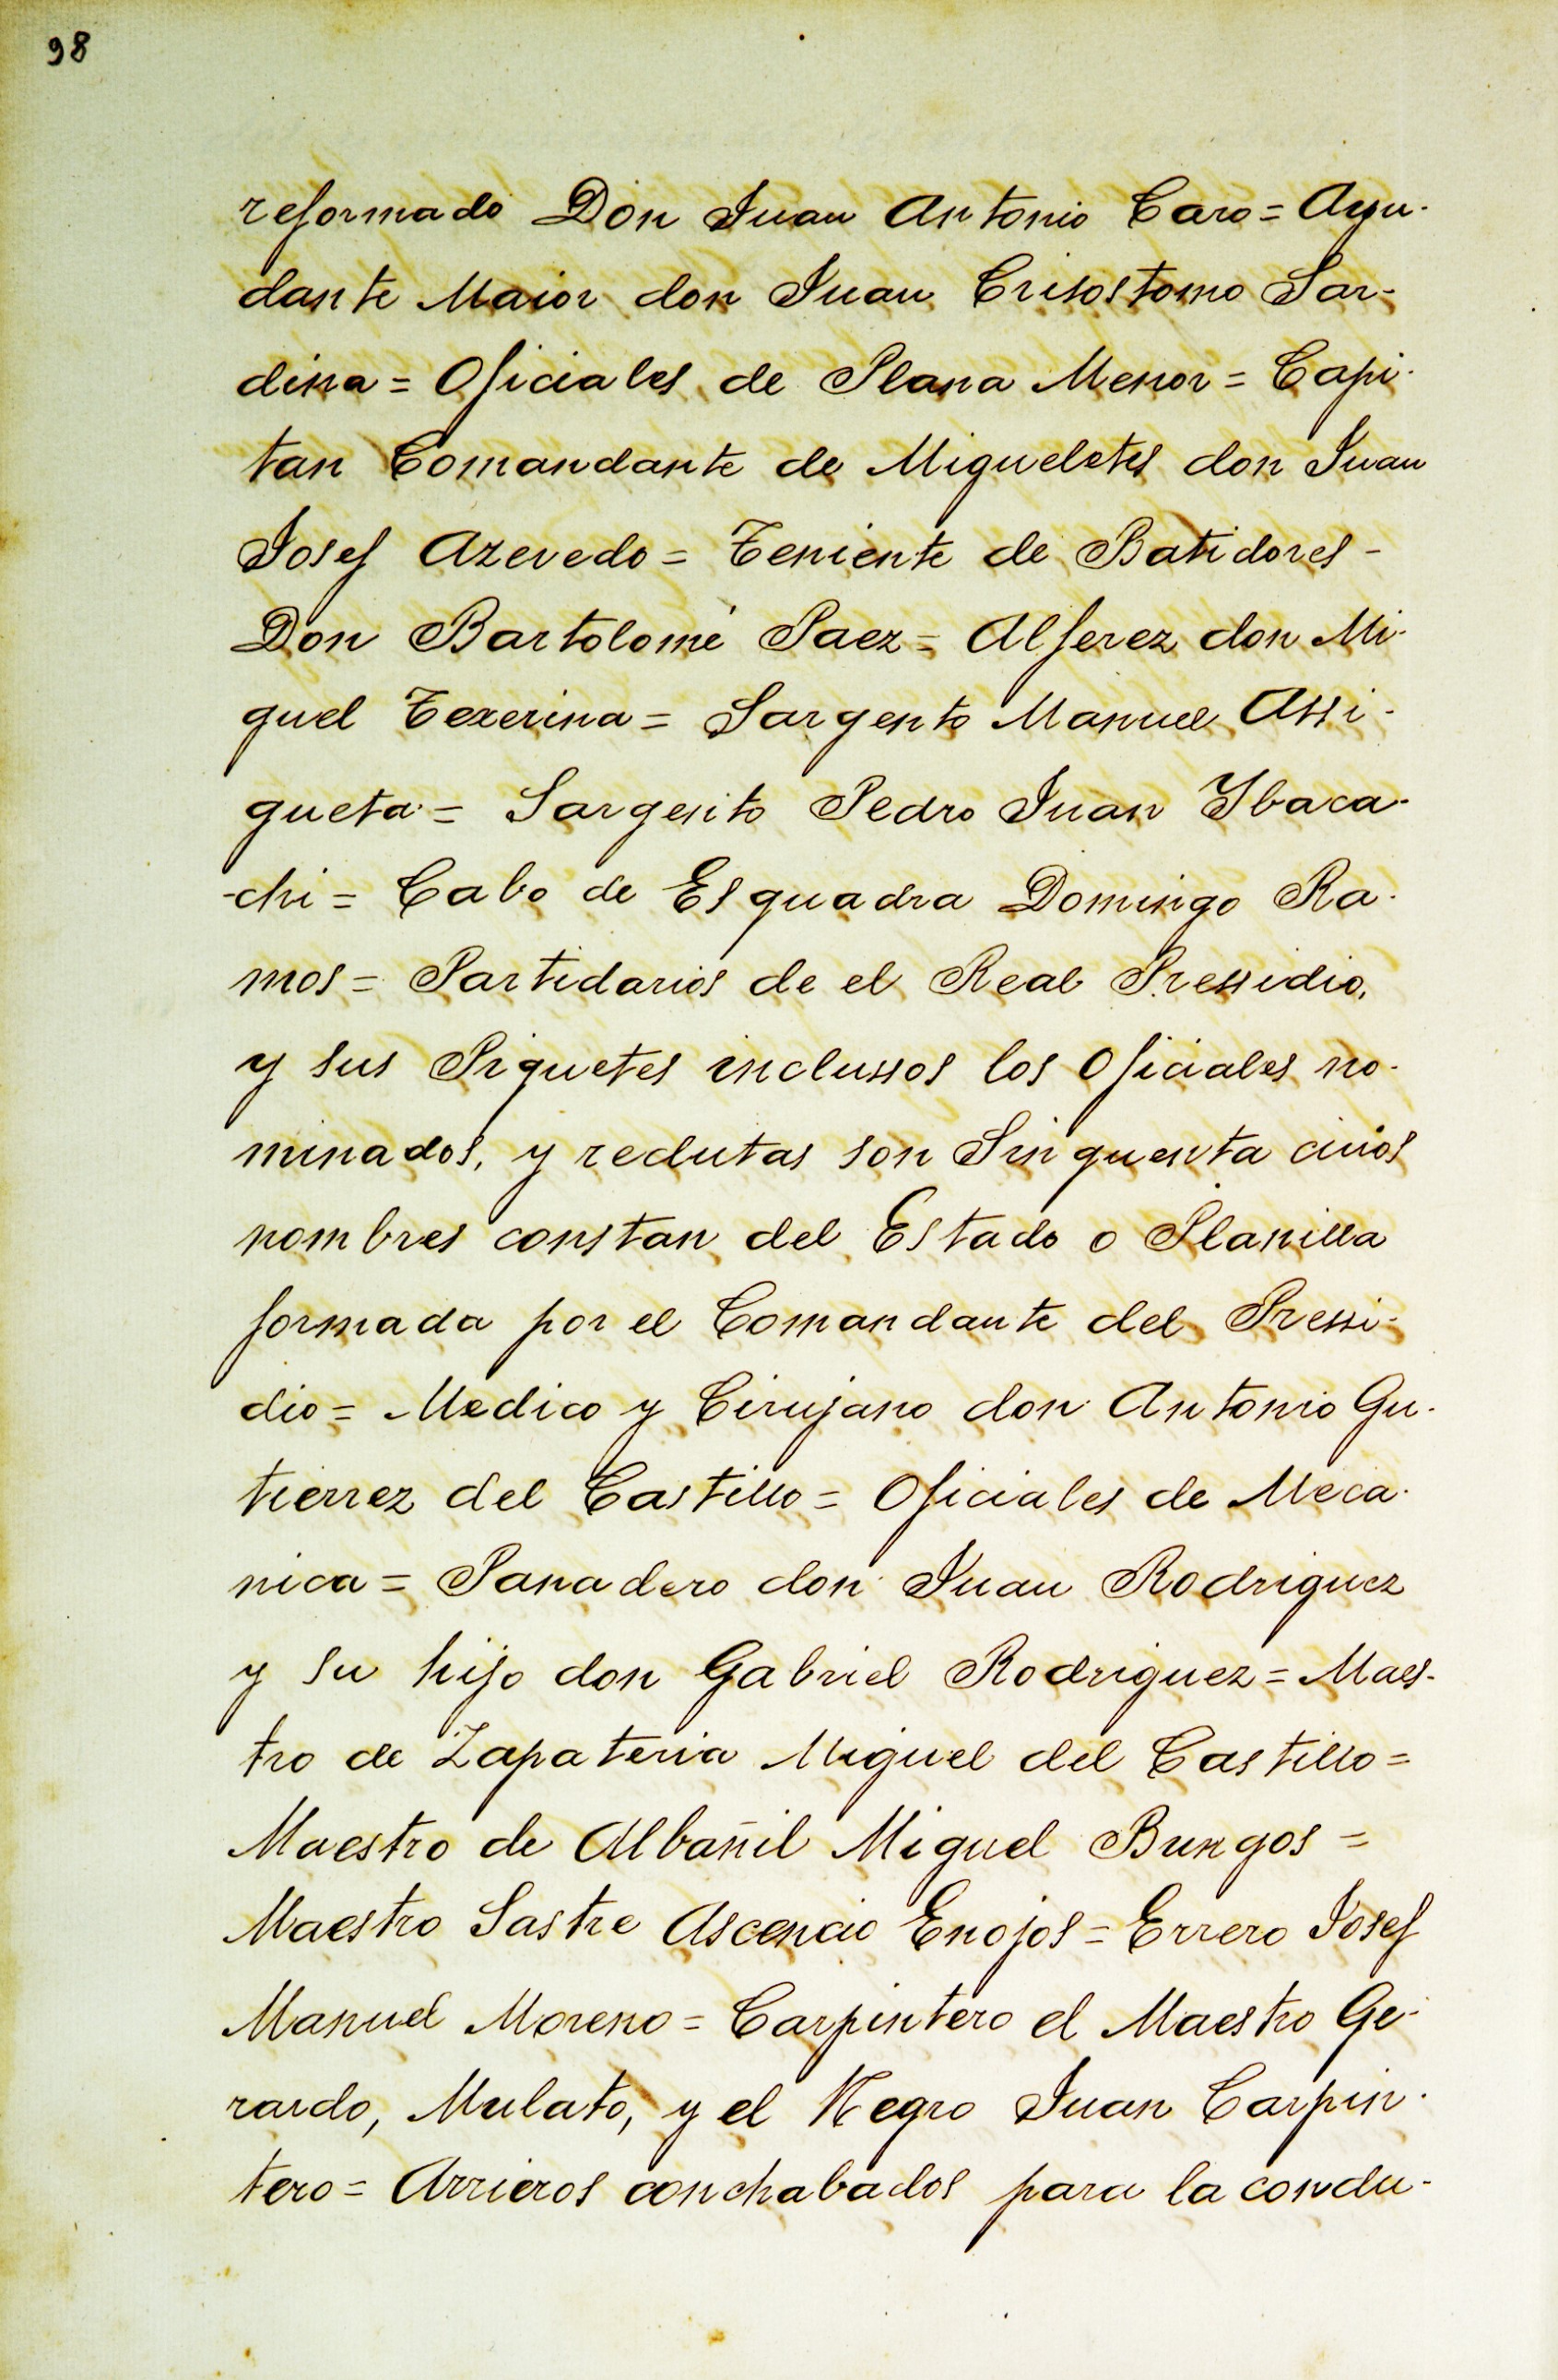 98
reformado Don Juan Antonio Caro = Ayu-
dante Maior don Juan Crisostomo Sar-
dina = Oficiales de Plana Menor = Capi-
tan Comandante de Migueletes don Juan
Josef Azevedo = Teniente de Batidores -
Don Bartolomé Paez = Alferez don Mi-
guel Texerina = Sargento Manuel Assi-
gueta = Sargento Pedro Juan Ybaca-
-chi = Cabo de Esquadra Domingo Ra-
mos = Partidarios de el Real Pressidio,
y sus Piquetes inclussos los Oficiales no-
minados, y reclutas son Sinquenta cuios
nombres constan del Estado o Planilla
formada por el Comandante del Pressi-
dio = Medico y Cirujano don Antonio Gu-
tierrez del Castillo = Oficiales de Meca-
nica = Panadero don Juan Rodriguez
y su hijo don Gabriel Rodriguez = Maes-
tro de Zapateria Miguel del Castillo =
Maestro de Albañil Miguel Bungos =
Maestro Sastre Ascencio Enojos = Errero Josef
Manuel Moreno = Carpintero el Maestro Ge-
rardo, Mulato, y el Negro Juan Carpin-
tero = Arrieros conchabados para la condu-